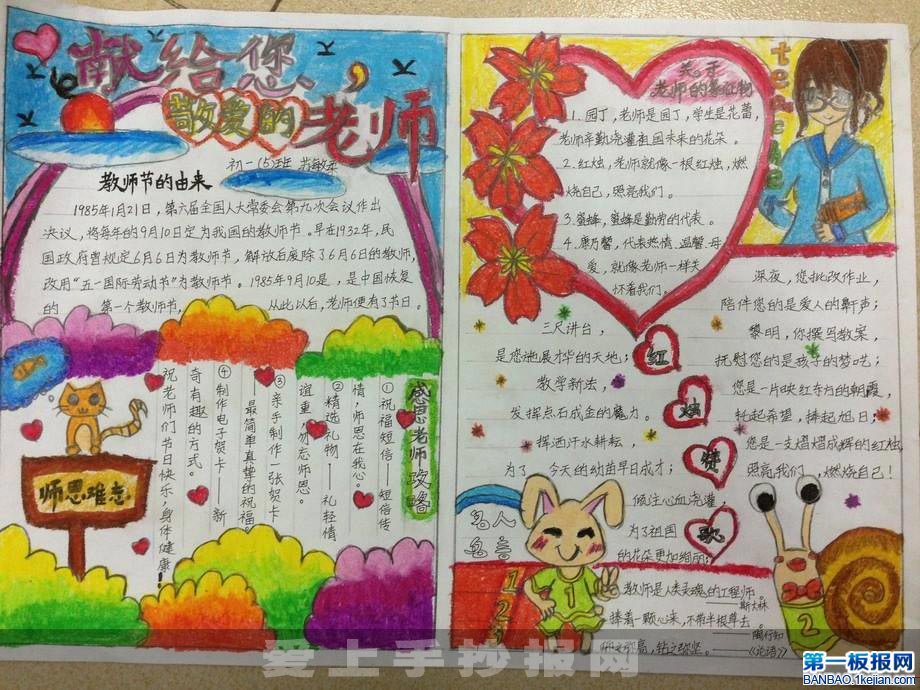 献给您、
敬爱的老师
初一(5)班
教师节的由来
1985年1月21日，第六届全国人大常委会第九次会议作出
决议，将每年的9月10日定为我国的教师节。早在1932年，民
国政府曾规定6月6日为教师节，解放后废除了6月6日的教师节，
改用“五一国际劳动节”为教师节。1985年9月10是，是中国恢复
的 第一个教师节， 从此以后，老师便有了节日。
感恩老师攻略
①祝福短信——短信传
情，师恩在我心。
②精选礼物——礼轻情
谊重，勿忘师恩。
③亲手制作一张贺卡
——最简单真挚的祝福
④制作电子贺卡——新
奇有趣的方式。
祝老师们节日快乐、身体健康！
师恩难忘
关于
老师的象征物
1.园丁，老师是园丁，学生是花蕾，
老师辛勤浇灌祖国未来的花朵。
2.红烛，老师就像一根红烛，燃
烧自己，照亮我们。
3.蜜蜂，蜜蜂是勤劳的代表。
4.康乃馨，代表热情、温馨、母
爱，就像老师一样关
怀着我们。
红烛赞歌
三尺讲台，
是您施展才华的天地；
教学新法，
发挥点石成金的魔力。
挥洒汗水耕耘，
为了 今天的幼苗早日成才；
倾注心血浇灌，
为了祖国
的花朵更加绚丽；
深夜，您批改作业，
陪伴您的是爱人的鼾声；
黎明，你撰写教案，
抚慰您的是孩子的梦呓；
您是一片映红东方的朝霞，
托起希望，捧起旭日；
您是一支熠熠成辉的红烛，
照亮我们，燃烧自己！
名人
名言
1
2
3
1
2
教师是人类灵魂的工程师。
斯大林
捧着一颗心来，不带半根草去。
陶行知
仰之弥高，钻之弥坚。——《论语》
爱上手抄报网
第一板报网
BANBAO.1kejian.com